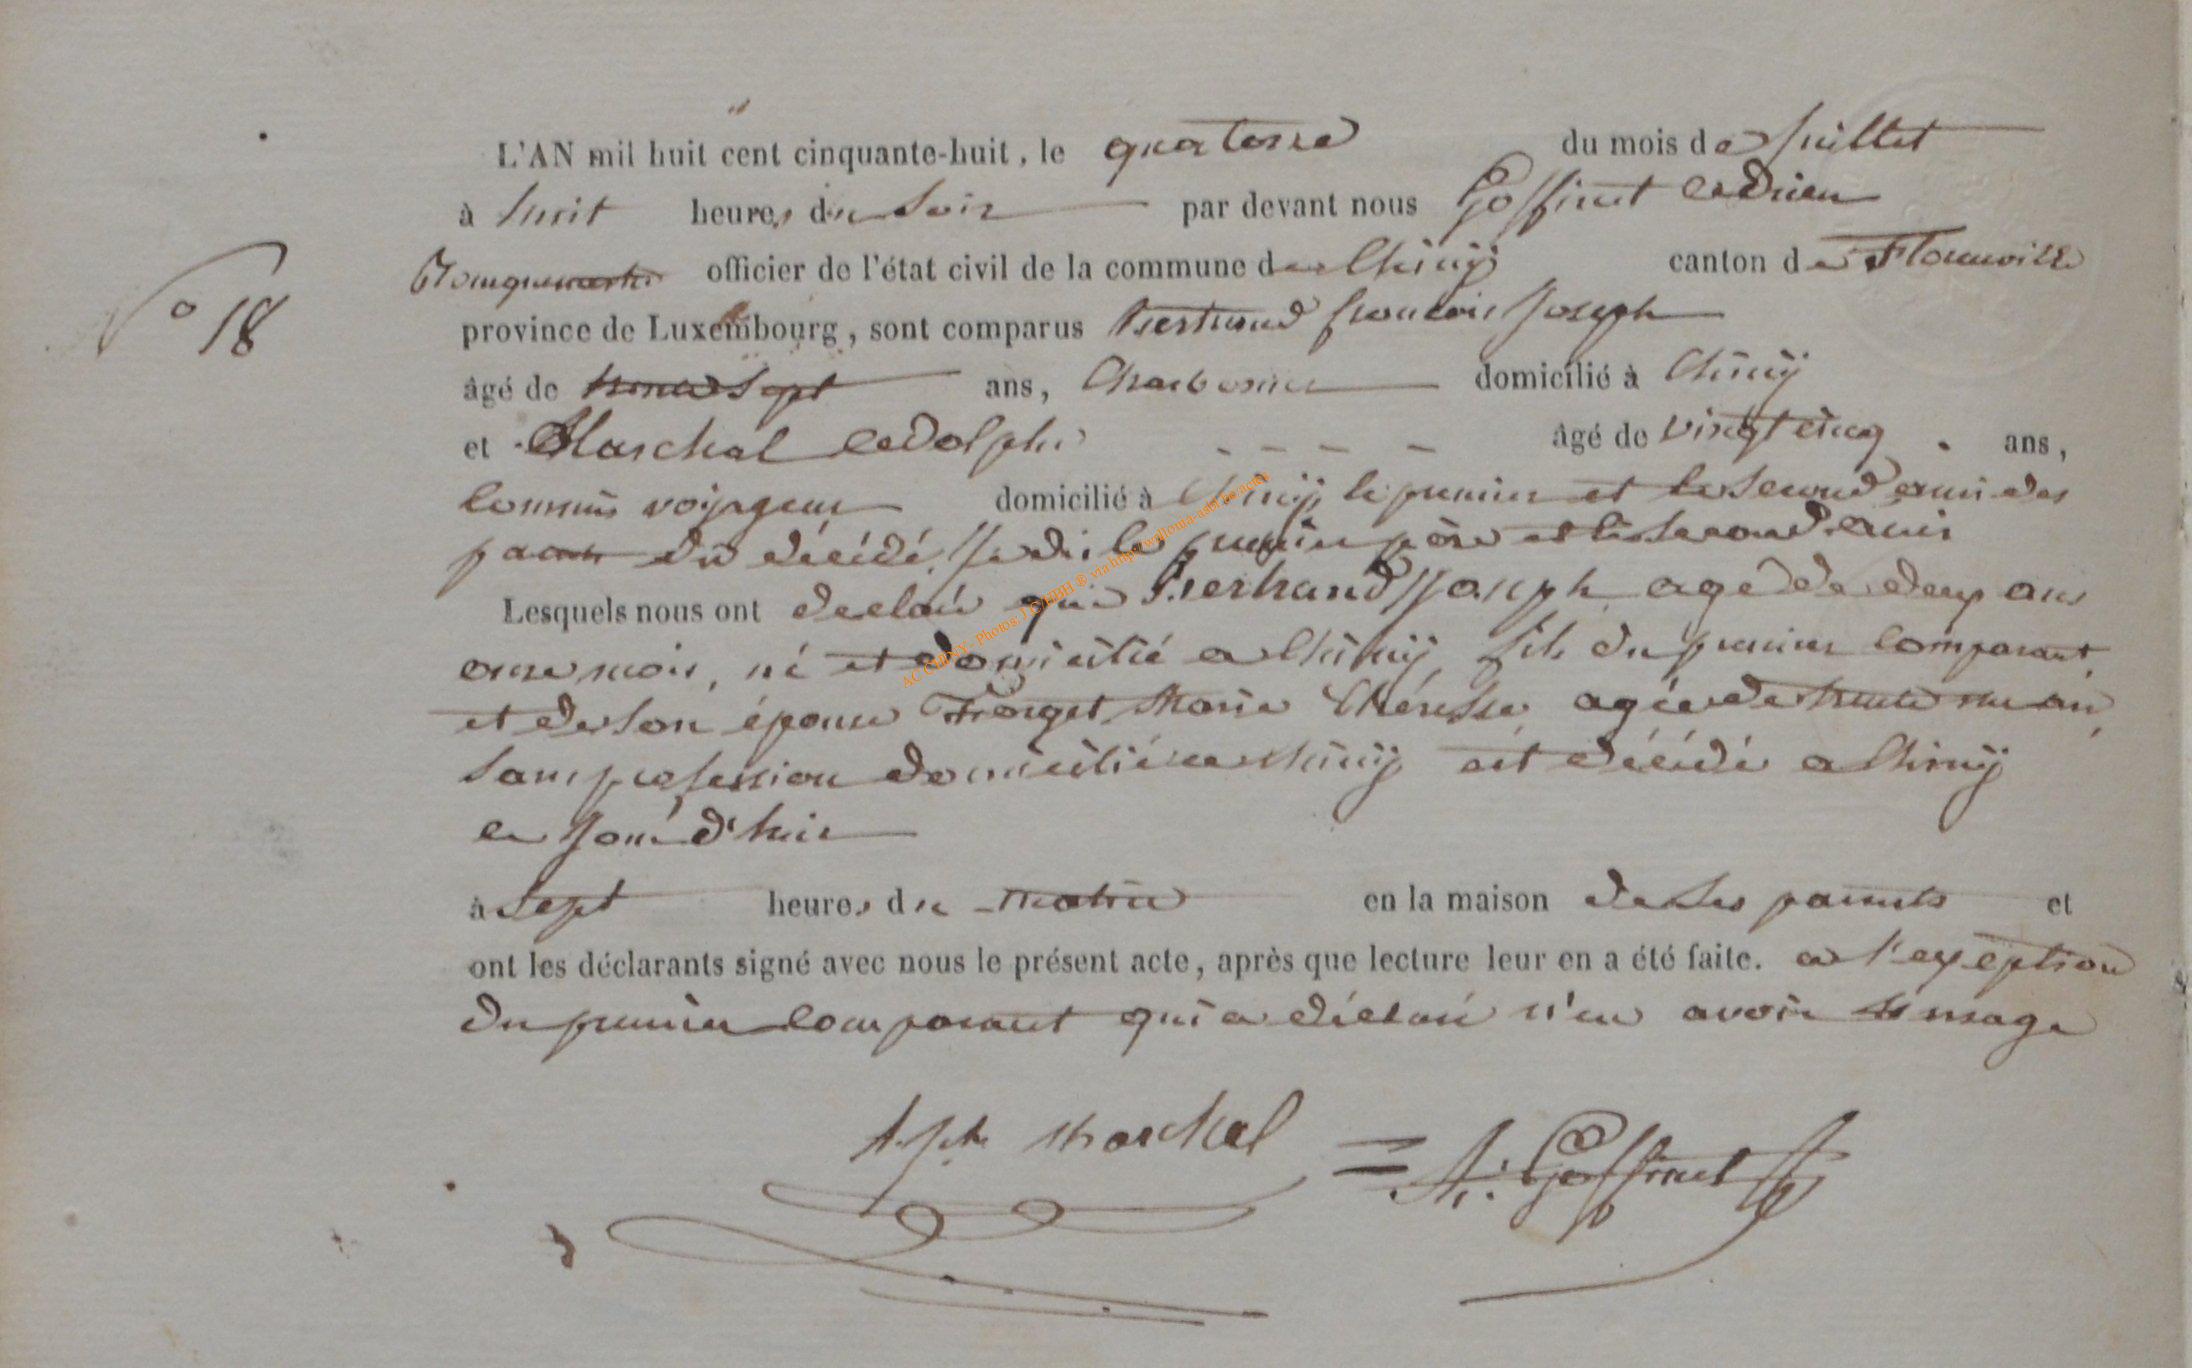 L'AN mil huit cent cinquante-huit, le quatorze du mois de Juillet
à huit heures du Soir par devant nous Goffinet Adrien
Bourguemestre officier de l'état civil de la commune de Chiny canton de Florenville
N° 18
province de Luxembourg, sont comparus Bertrand françois Joseph
âgé de trente Sept ans, Charbonier domicilié à Chiny
et Marchal Adolphe âgé de vingt cinq ans,
Commis voyageur domicilié à Chiny, le premier et le second ami des
du décédé, Je dis le premier père et le Second ami
Lesquels nous ont declaré que Bertrand Joseph agé de deux ans
onze mois, né et domicilié a Chiny, fils du premier comparant
et de son épouse Forget Marie Thérèse agée de trente un an,
Sans profession domiciliée a Chiny est décédé a Chiny
ce Jourd'hui
à Sept heures du matin en la maison de Ses parents et
ont les déclarants signé avec nous le présent acte, après que lecture leur en a été faite. a l'exeption
du premier comparant qui a déclaré n'en avoir usage
Marchal A. Goffinet
AC CHINY - Photos J CHIBH ® via